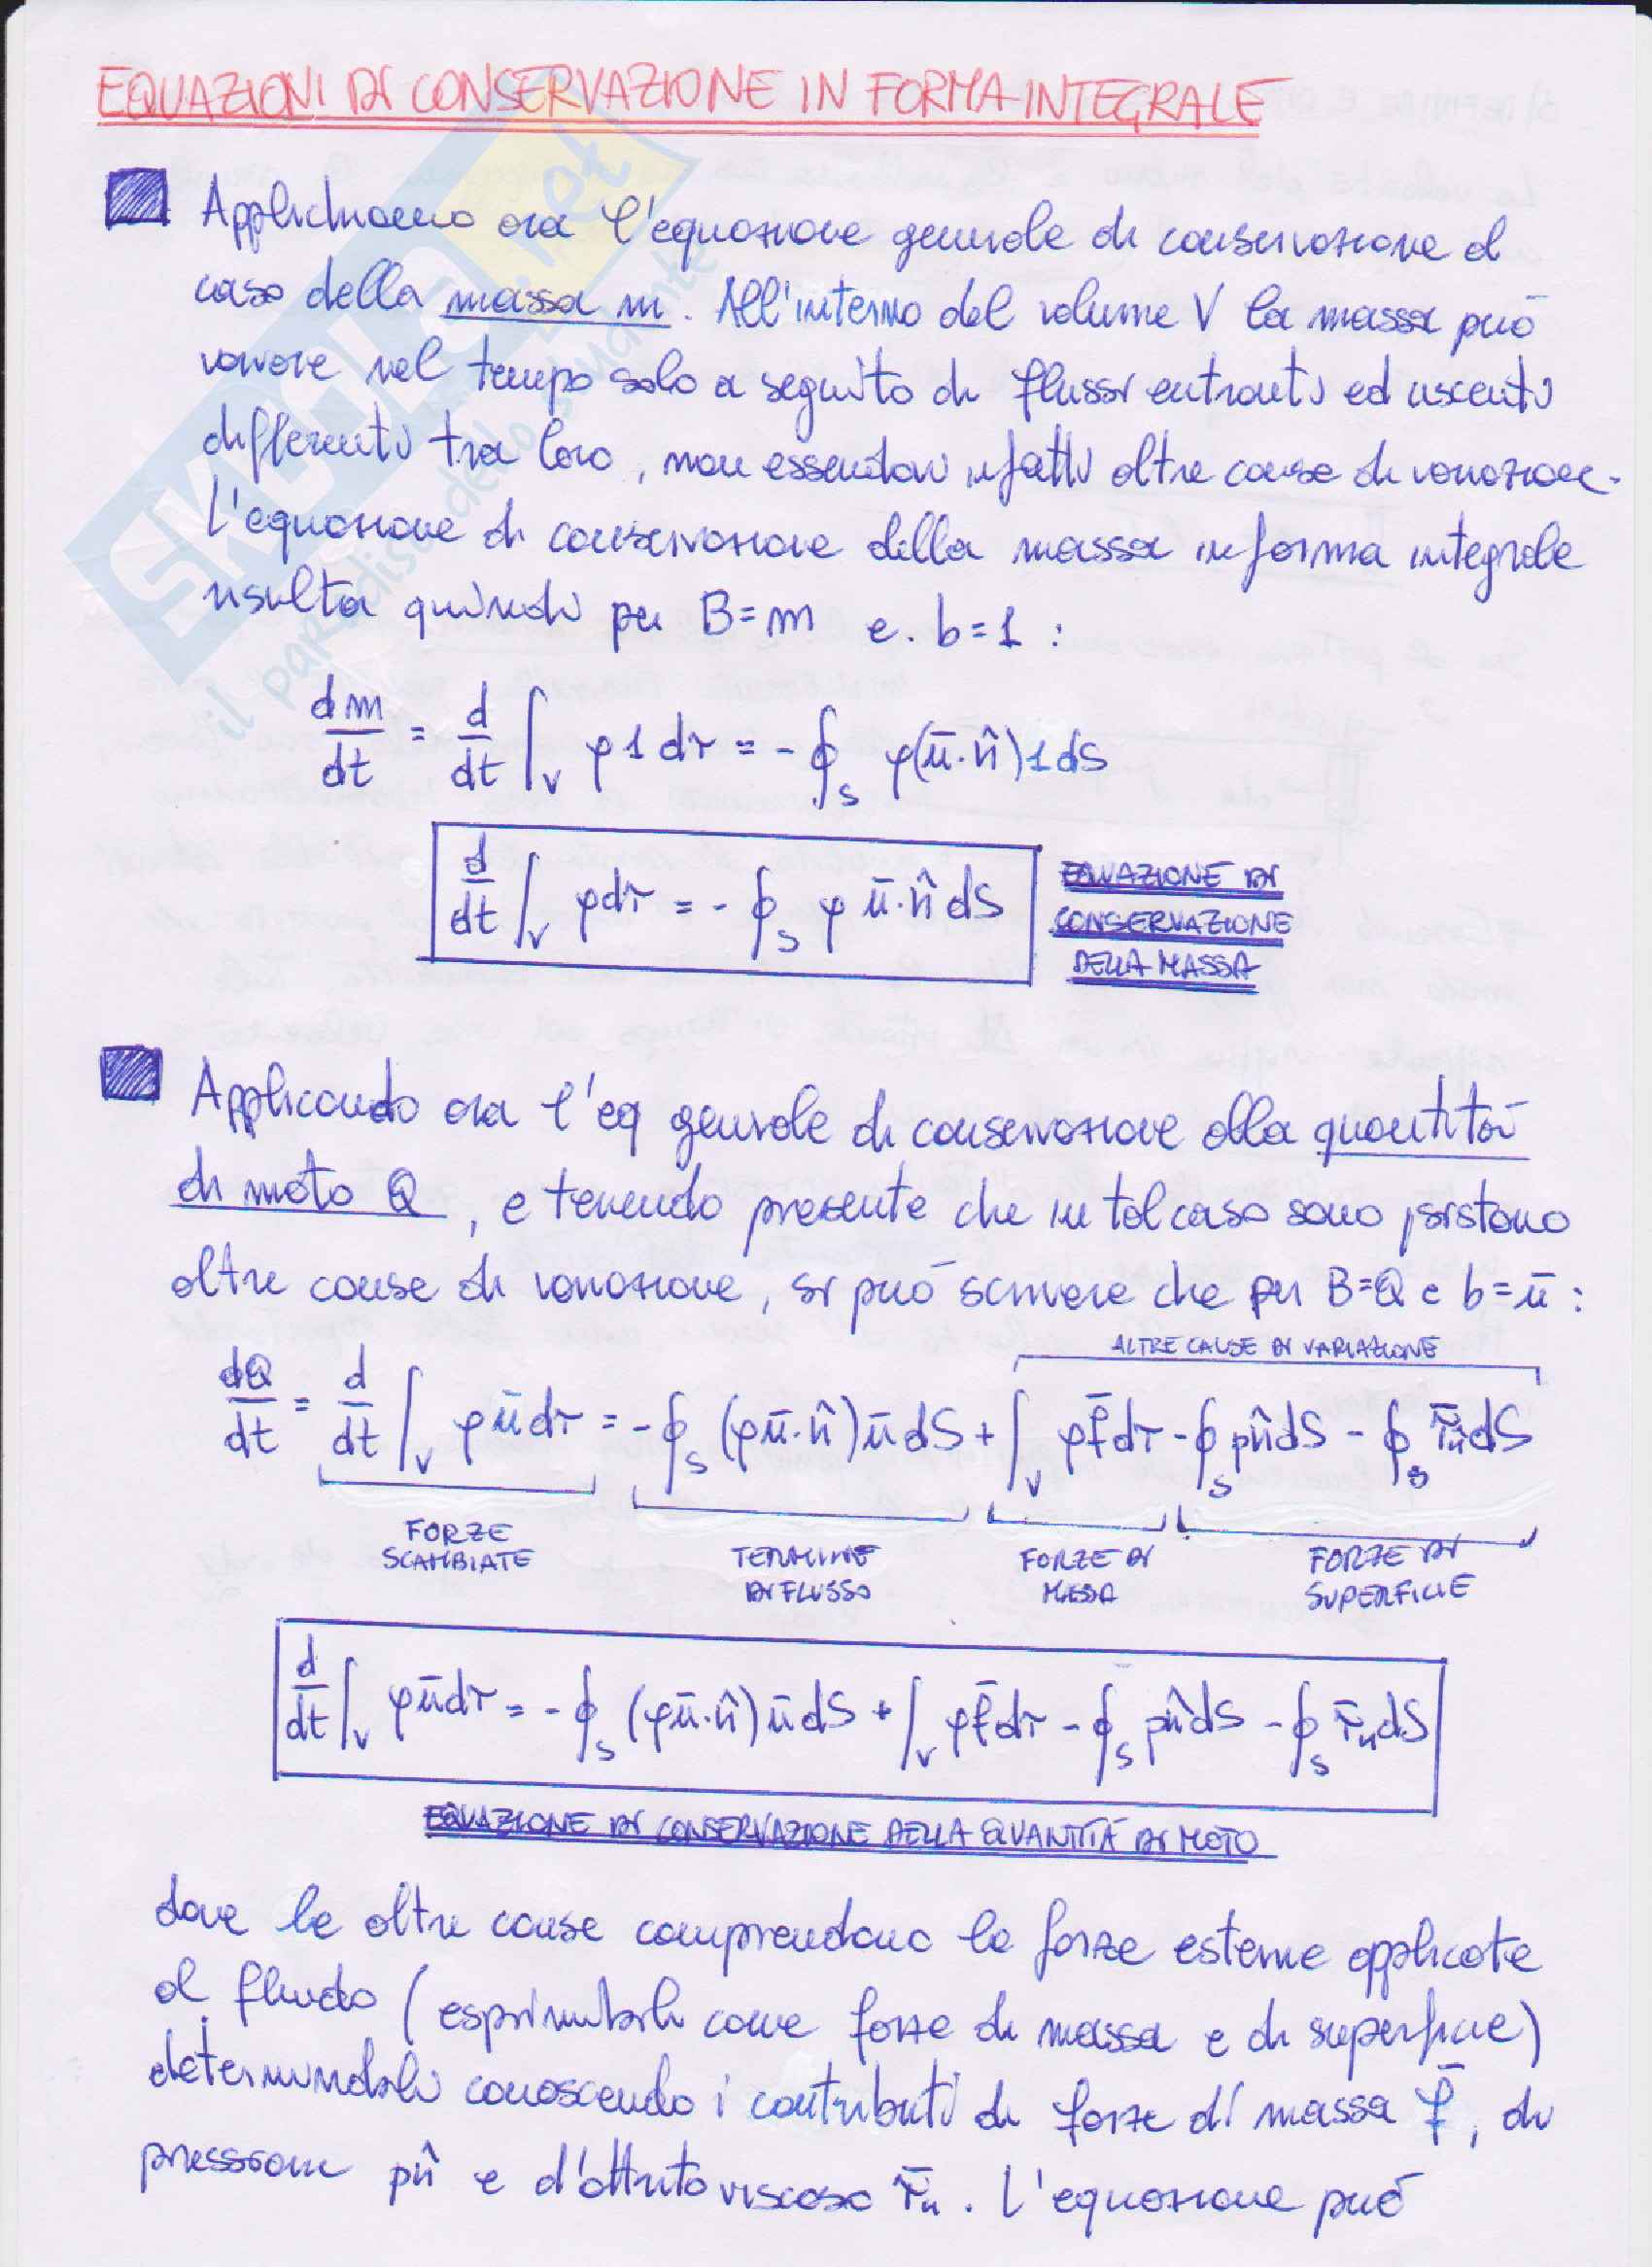 EQUAZIONI DI CONSERVAZIONE IN FORMA INTEGRALE
Applichiamo ora l'equazione generale di conservazione al
caso della massa m. All'interno del volume V la massa può
variare nel tempo solo a seguito di flussi entranti ed uscenti
differenti tra loro, non essendovi infatti altre cause di variazione.
L'equazione di conservazione della massa in forma integrale
risulta quindi per B=m e. b=1 :
dm/dt = d/dt ∫_V ρ 1 dτ = - ∮_S ρ(ū·n̂)1 dS
d/dt ∫_V ρ dτ = - ∮_S ρ ū·n̂ dS
EQUAZIONE DI
CONSERVAZIONE
DELLA MASSA
Applicando ora l'eq generale di conservazione alla quantità
di moto Q, e tenendo presente che in tal caso sono
altre cause di variazione, si può scrivere che per B=Q e b=ū :
ALTRE CAUSE DI VARIAZIONE
dQ/dt = d/dt ∫_V ρū dτ = - ∮_S (ρū·n̂)ū dS + ∫_V ρf̄ dτ - ∮_S pn̂ dS - ∮_S τ̄ₙ dS
FORZE SCAMBIATE
TERMINE DI FLUSSO
FORZE DI MASSA
FORZE DI SUPERFICIE
d/dt ∫_V ρū dτ = - ∮_S (ρū·n̂)ū dS + ∫_V ρf̄ dτ - ∮_S pn̂ dS - ∮_S τ̄ₙ dS
EQUAZIONE DI CONSERVAZIONE DELLA QUANTITÀ DI MOTO
dove le altre cause comprendono le forze esterne applicate
al fluido (esprimibili come forze di massa e di superficie)
determinabili conoscendo i contributi di forze di massa f̄, di
pressione pn̂ e d'attrito viscoso τ̄ₙ. L'equazione può
SKUOLA.net
il paradiso dello studente